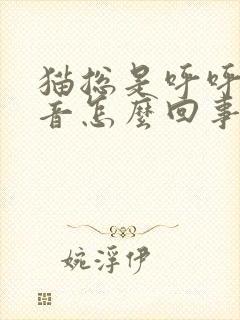 猫总是呼呼
音怎麼回事
婉浮伊